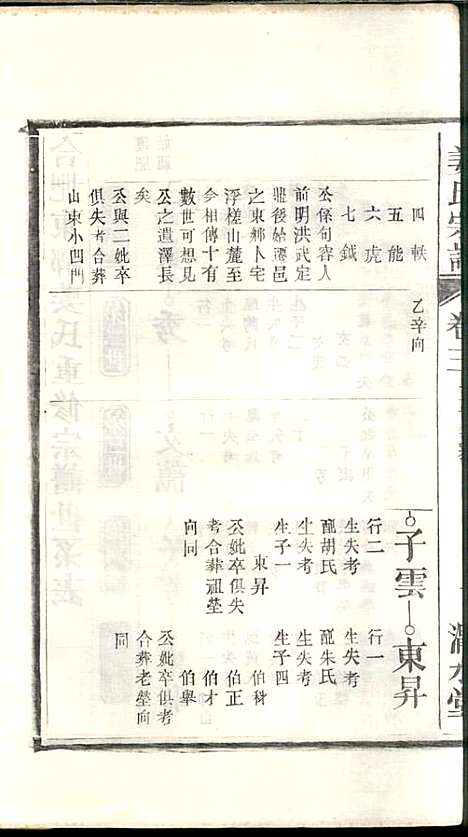 姜氏宗譜
卷三
渭水堂
四軼
五能
六虎
七鉞
公係句容人
前明洪武定
鼎後始遷邑
之東鄉卜宅
浮槎山麓至
今相傳十有
數世可想見
公之遺澤長
矣
公與二妣卒
俱失考合葬
山東小四門
乙辛向
子雲
行二
生失考
配胡氏
生失考
生子一
東昇
公妣卒俱失
考合葬祖塋
向同
東昇
行一
生失考
配朱氏
生失考
生子四
伯科
伯正
伯才
伯舉
公妣卒俱考
合葬老塋向
同